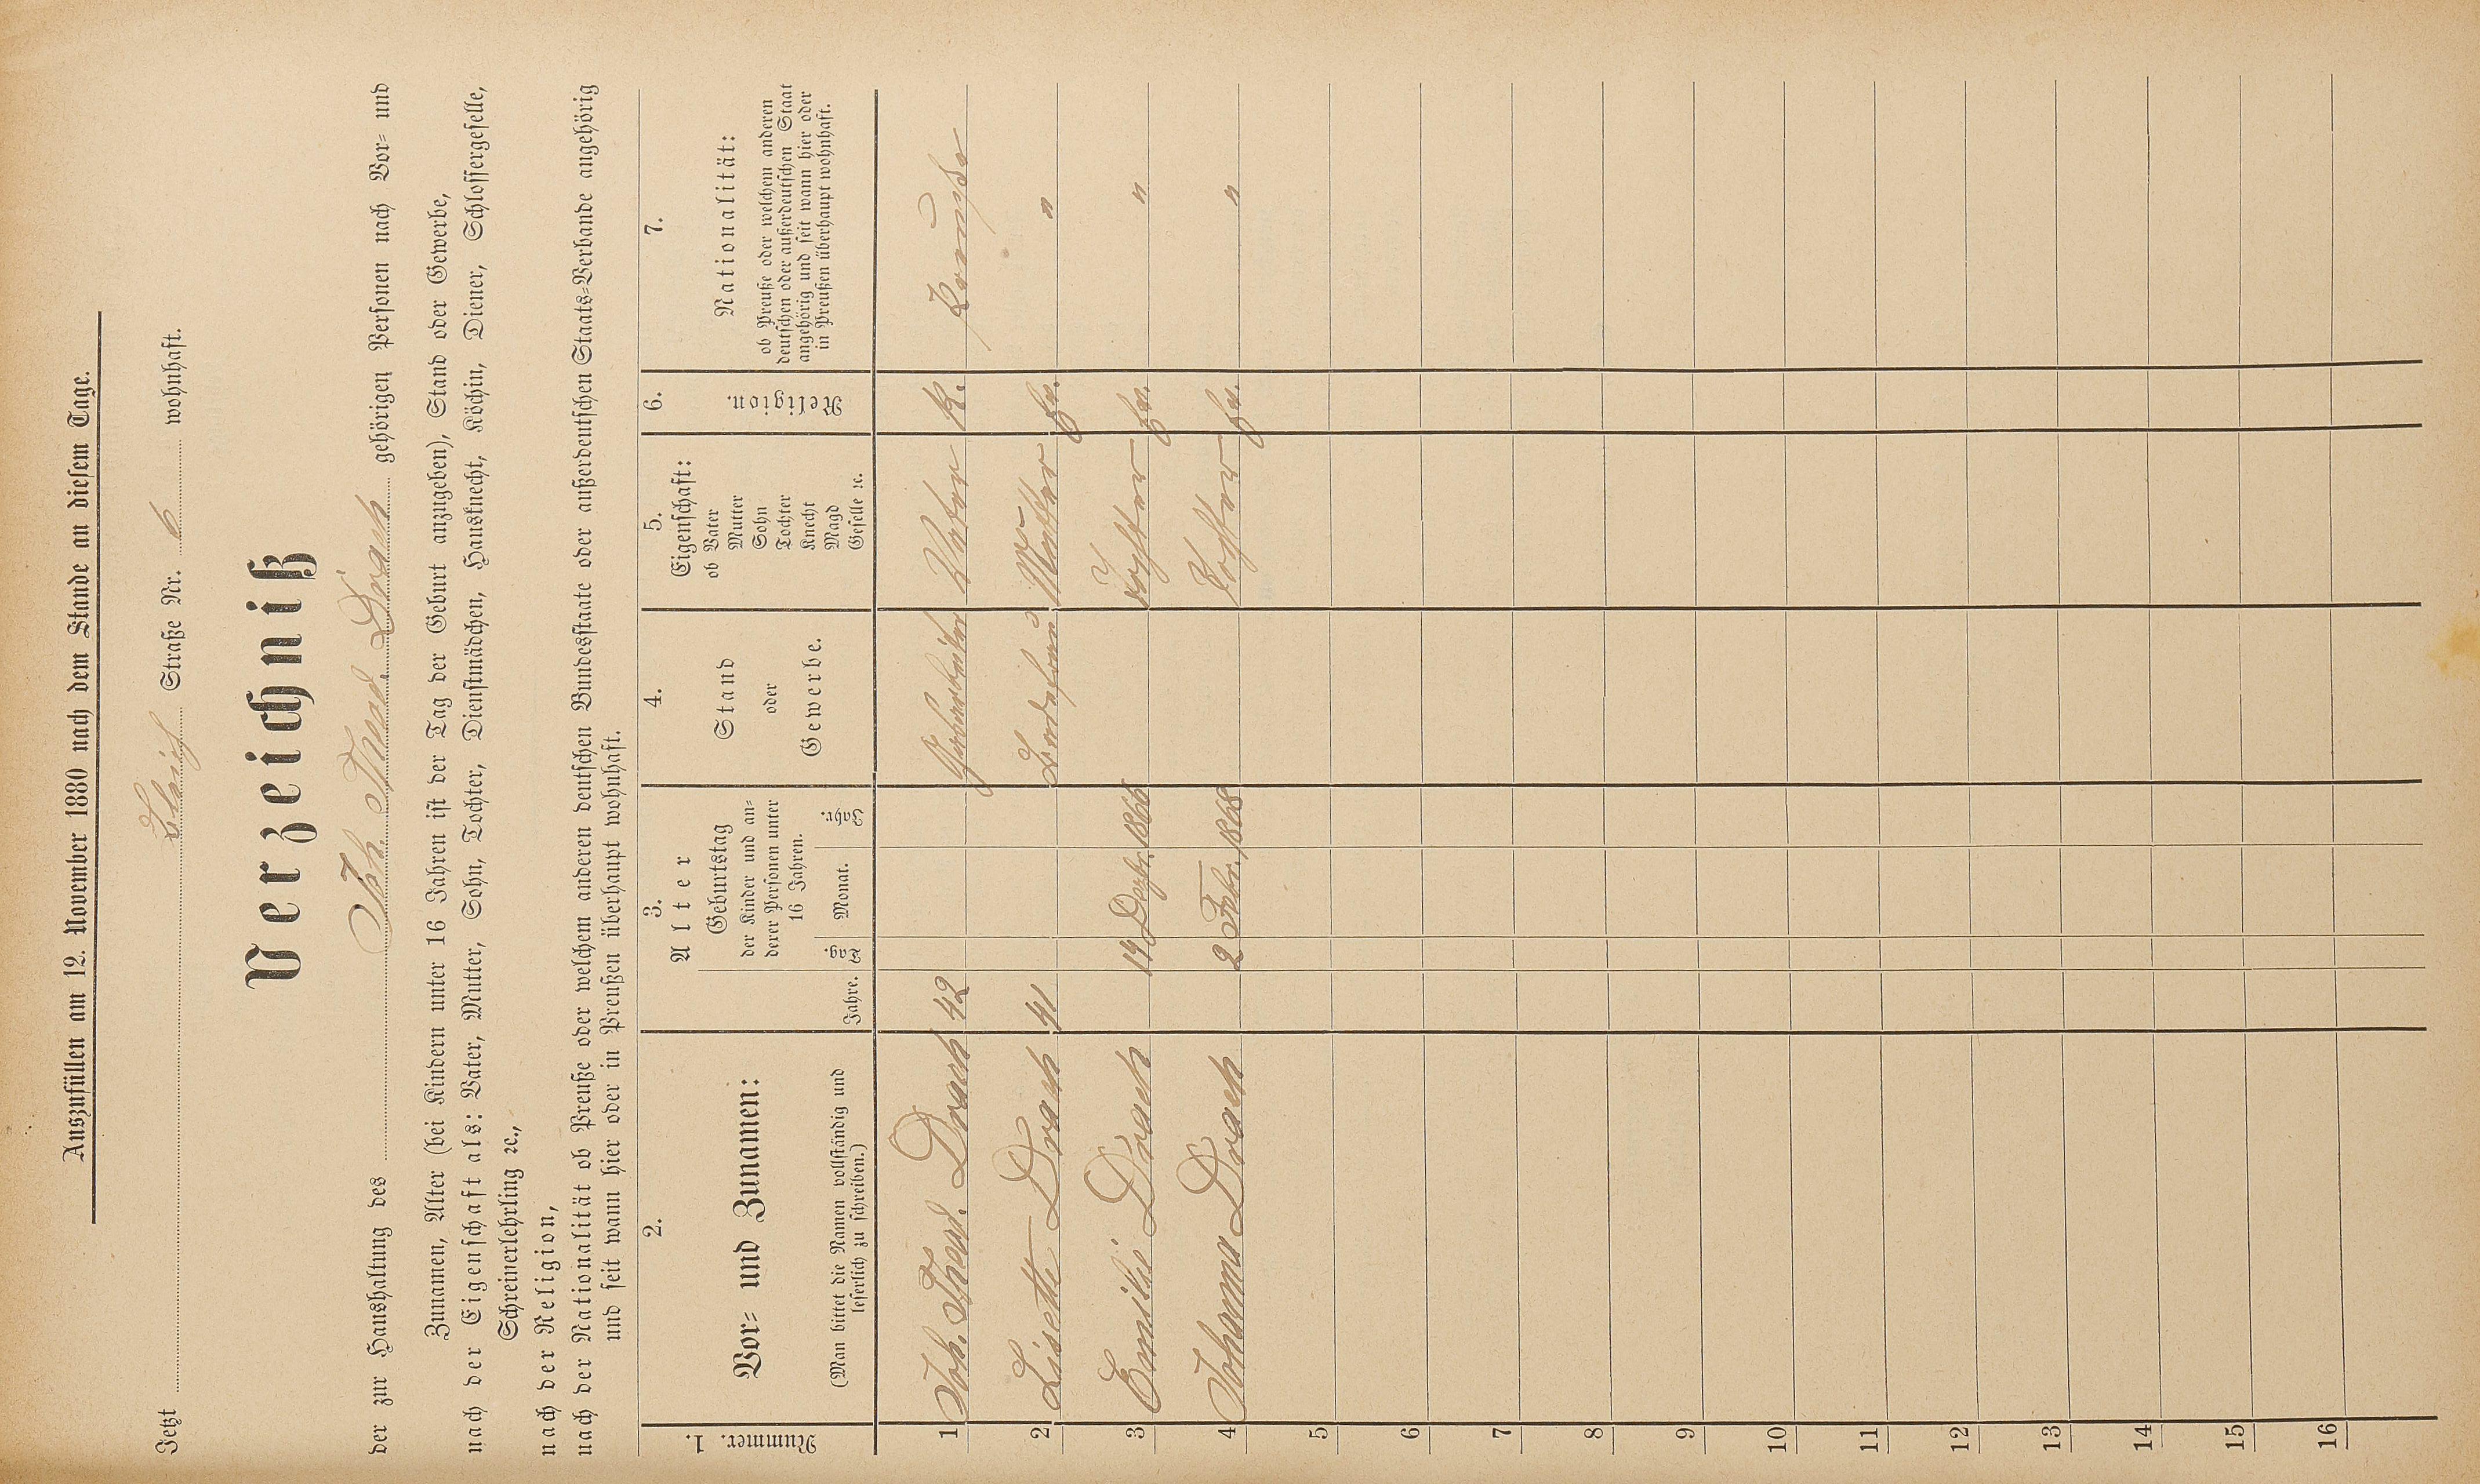 Auszufüllen am 12. November 1880 nach dem Stande an diesem Tage.
Jetzt Bleich Straße Nr. 6 wohnhaft.
Verzeichniß
der zur Haushaltung des Joh. Theod. Drach gehörigen Personen nach Vor- und
Zunamen, Alter (bei Kindern unter 16 Jahren ist der Tag der Geburt anzugeben), Stand oder Gewerbe,
nach der Eigenschaft als: Vater, Mutter, Sohn, Tochter, Dienstmädchen, Hausknecht, Köchin, Diener, Schlossergeselle,
Schreinerlehrling ꝛc.,
nach der Religion,
nach der Nationalität ob Preuße oder welchem anderen deutschen Bundesstaate oder außerdeutschen Staats-Verbande angehörig
und seit wann hier oder in Preußen überhaupt wohnhaft.
1. Nummer.
2.
Vor- und Zunamen:
(Man bittet die Namen vollständig und
leserlich zu schreiben.)
3.
Alter
Jahre.
Geburtstag
der Kinder und an-
derer Personen unter
16 Jahren.
Tag Monat. Jahr.
4.
Stand
oder
Gewerbe.
5.
Eigenschaft:
ob Vater
Mutter
Sohn
Tochter
Knecht
Magd
Geselle ꝛc.
6.
Religion.
7.
Nationalität:
ob Preuße oder welchem anderen
deutschen oder außerdeutschen Staat
angehörig und seit wann hier oder
in Preußen überhaupt wohnhaft.
1 Joh. Theod. Drach 42 Vater K. Preuße
2 Lisette Drach 41 Mutter Ev. "
3 Emilie Drach 14 Dezbr. 1866 Tochter Ev. "
4 Johanna Drach 2 Febr. 1868 Tochter Ev. "
5
6
7
8
9
10
11
12
13
14
15
16